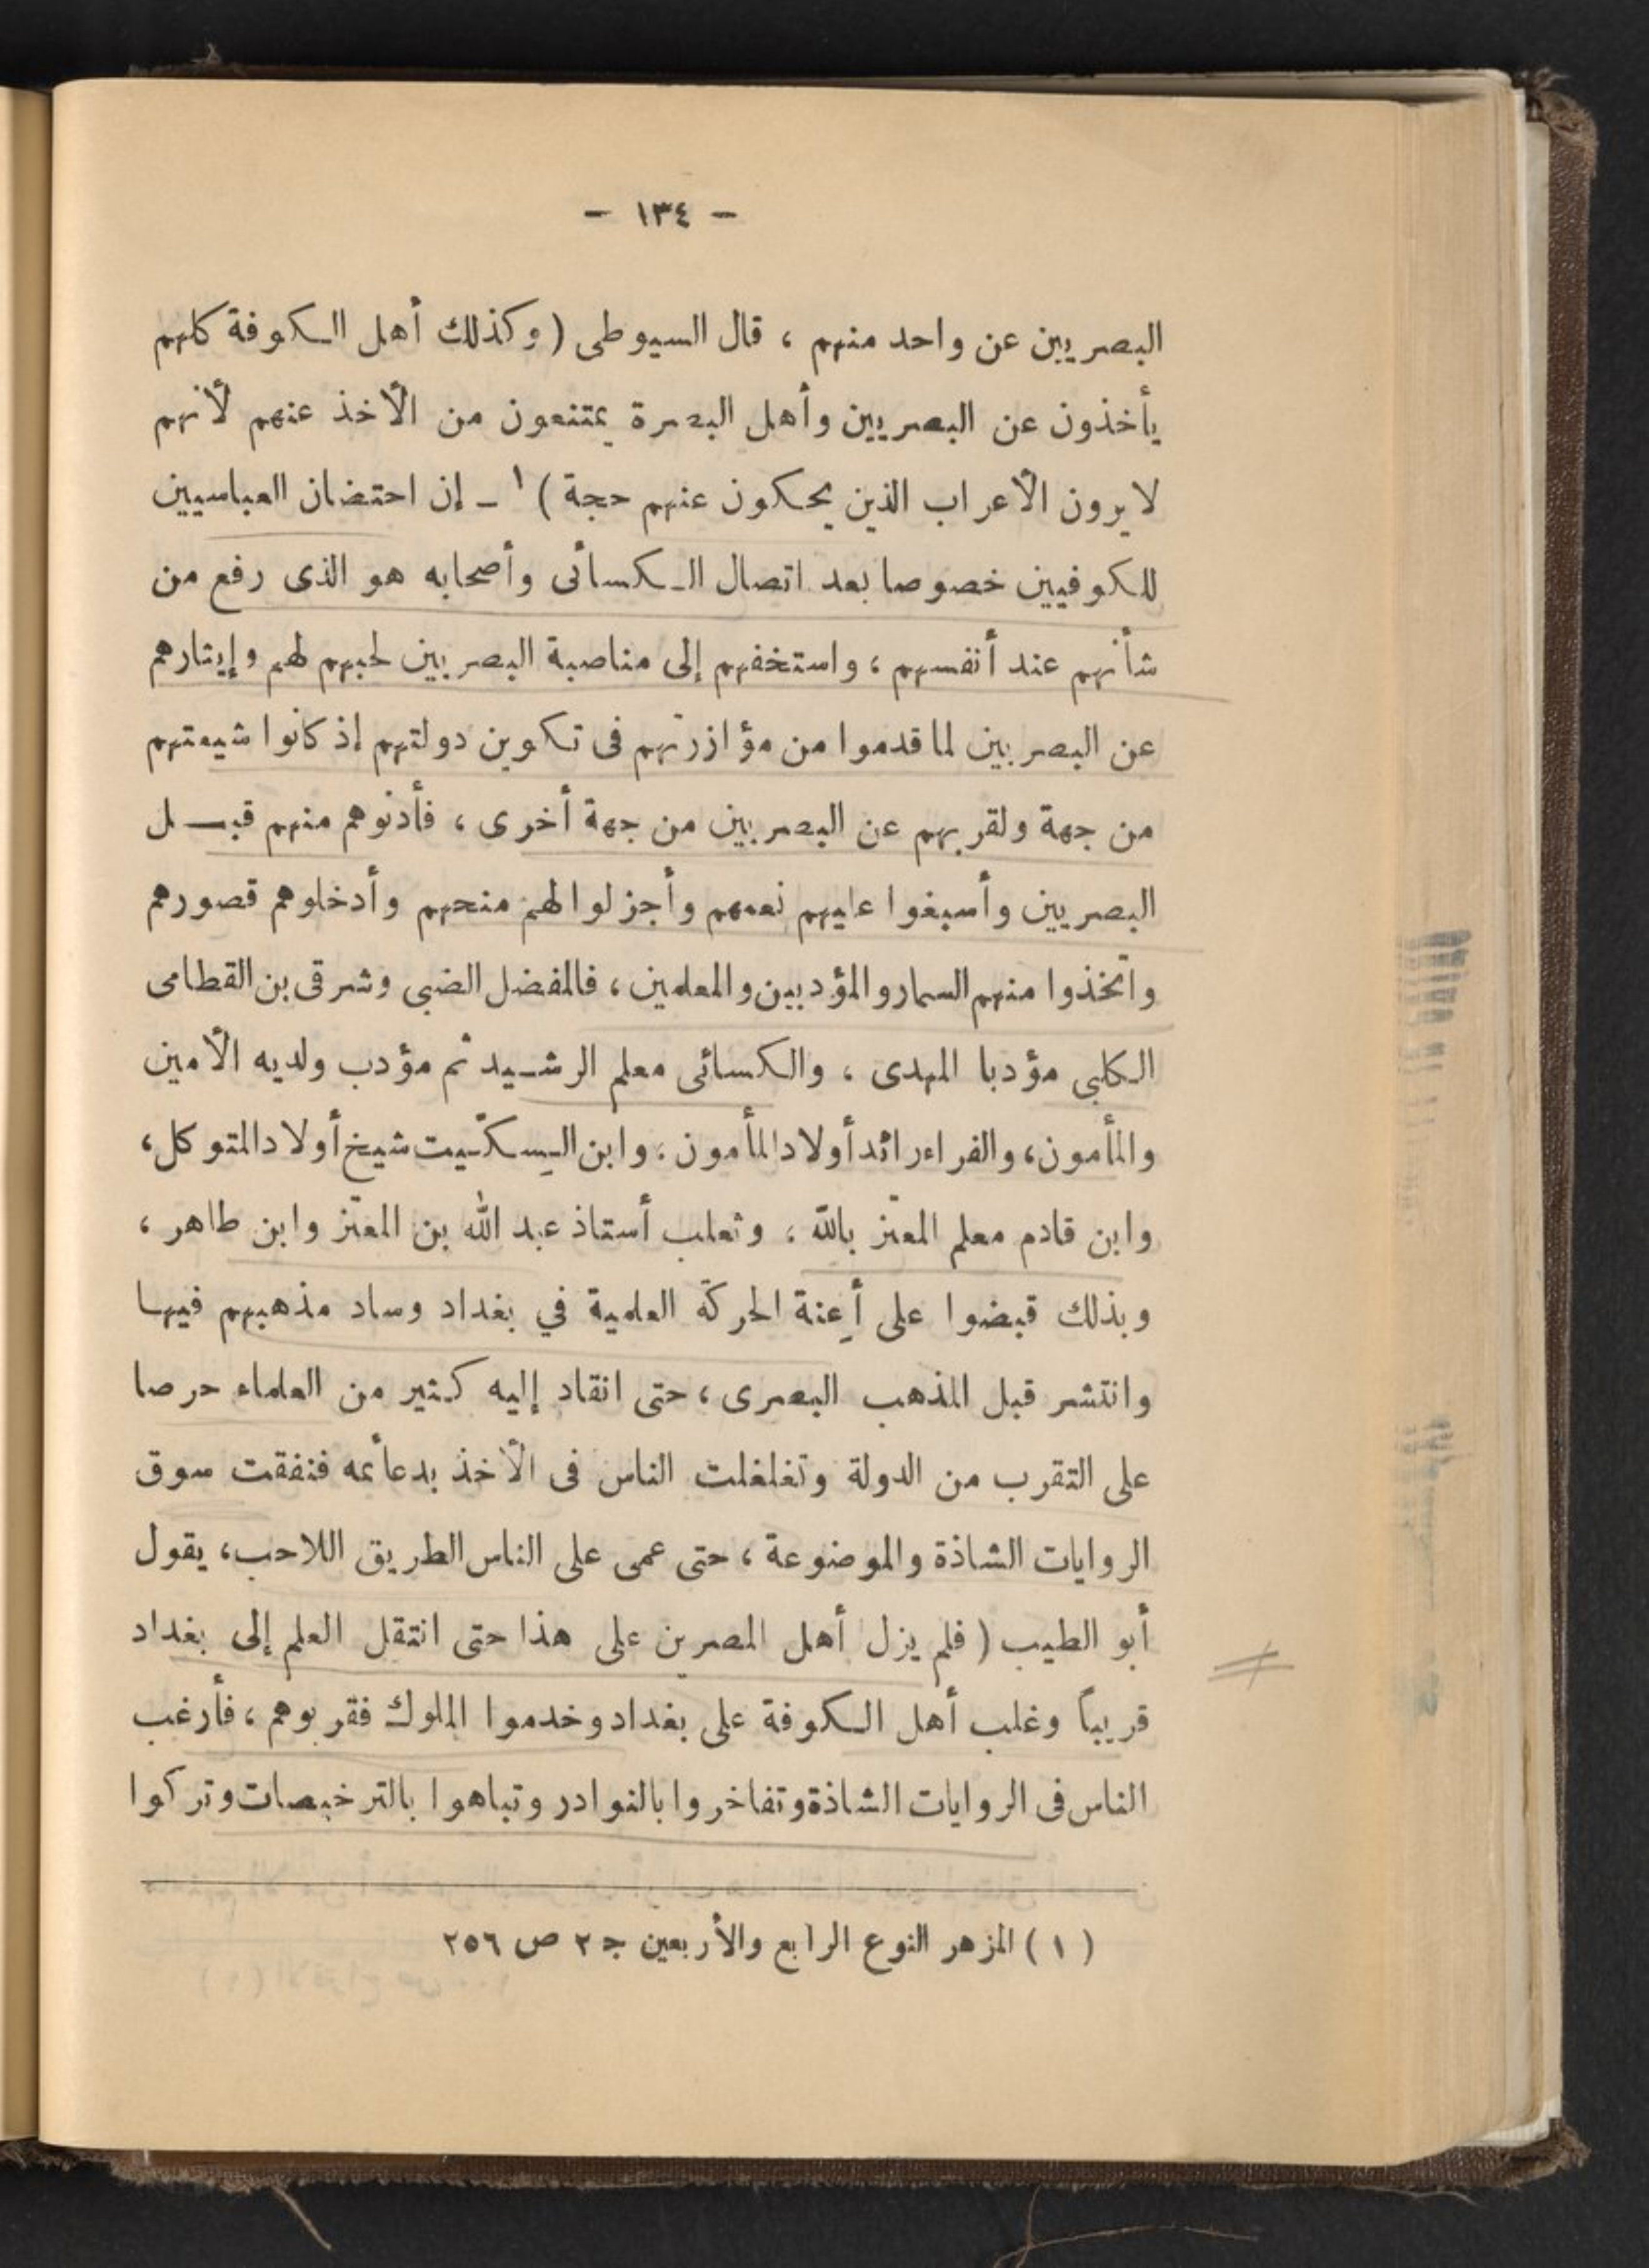 — ١٣٤ —
البصريين عن واحد منهم ، قال السيوطى ( وكذلك أهل الكوفة كلهم
يأخذون عن البصريين وأهل البصرة يمتنعون من الأخذ عنهم لأنهم
لا يرون الأعراب الذين يحكون عنهم حجة ) ١ ـ إن احتضان العباسيين
للكوفيين خصوصا بعد اتصال الكسائى وأصحابه هو الذى رفع من
شأنهم عند أنفسهم ، واستخفهم إلى مناصبة البصريين لحبهم لهم وإيثارهم
عن البصريين لما قدموا من مؤازرتهم فى تكوين دولتهم إذ كانوا شيعتهم
من جهة ولقربهم عن البصريين من جهة أخرى ، فأدنوهم منهم قبـــل
البصريين وأسبغوا عليهم نعمهم وأجزلوا لهم منحهم وأدخلوهم قصورهم
واتخذوا منهم السمار والمؤدبين والمعلمين ، فالمفضل الضبى وشرقى بن القطامى
الكلبى مؤدبا المهدى ، والكسائى معلم الرشـيد ثم مؤدب ولديه الأمين
والمأمون ، والفراء رائد أولاد المأمون ، وابن السِكّيت شيخ أولاد المتوكل ،
وابن قادم معلم المعتز بالله ، وثعلب أستاذ عبد الله بن المعتز وابن طاهر ،
وبذلك قبضوا على أعِنة الحركة العلمية في بغداد وساد مذهبهم فيها
وانتشر قبل المذهب البصرى ، حتى انقاد إليه كثير من العلماء حرصا
على التقرب من الدولة وتغلغلت الناس فى الأخذ بدعائمه فنفقت سوق
الروايات الشاذة والموضوعة ، حتى عمى على الناس الطريق اللاحب ، يقول
أبو الطيب ( فلم يزل أهل المصرين على هذا حتى انتقل العلم إلى بغداد
قريباً وغلب أهل الكوفة على بغداد وخدموا الملوك فقربوهم ، فأرغب
الناس فى الروايات الشاذة وتفاخروا بالنوادر وتباهوا بالترخيصات وتركوا
( ١ ) المزهر النوع الرابع والأربعين جـ ٢ ص ٢٥٦